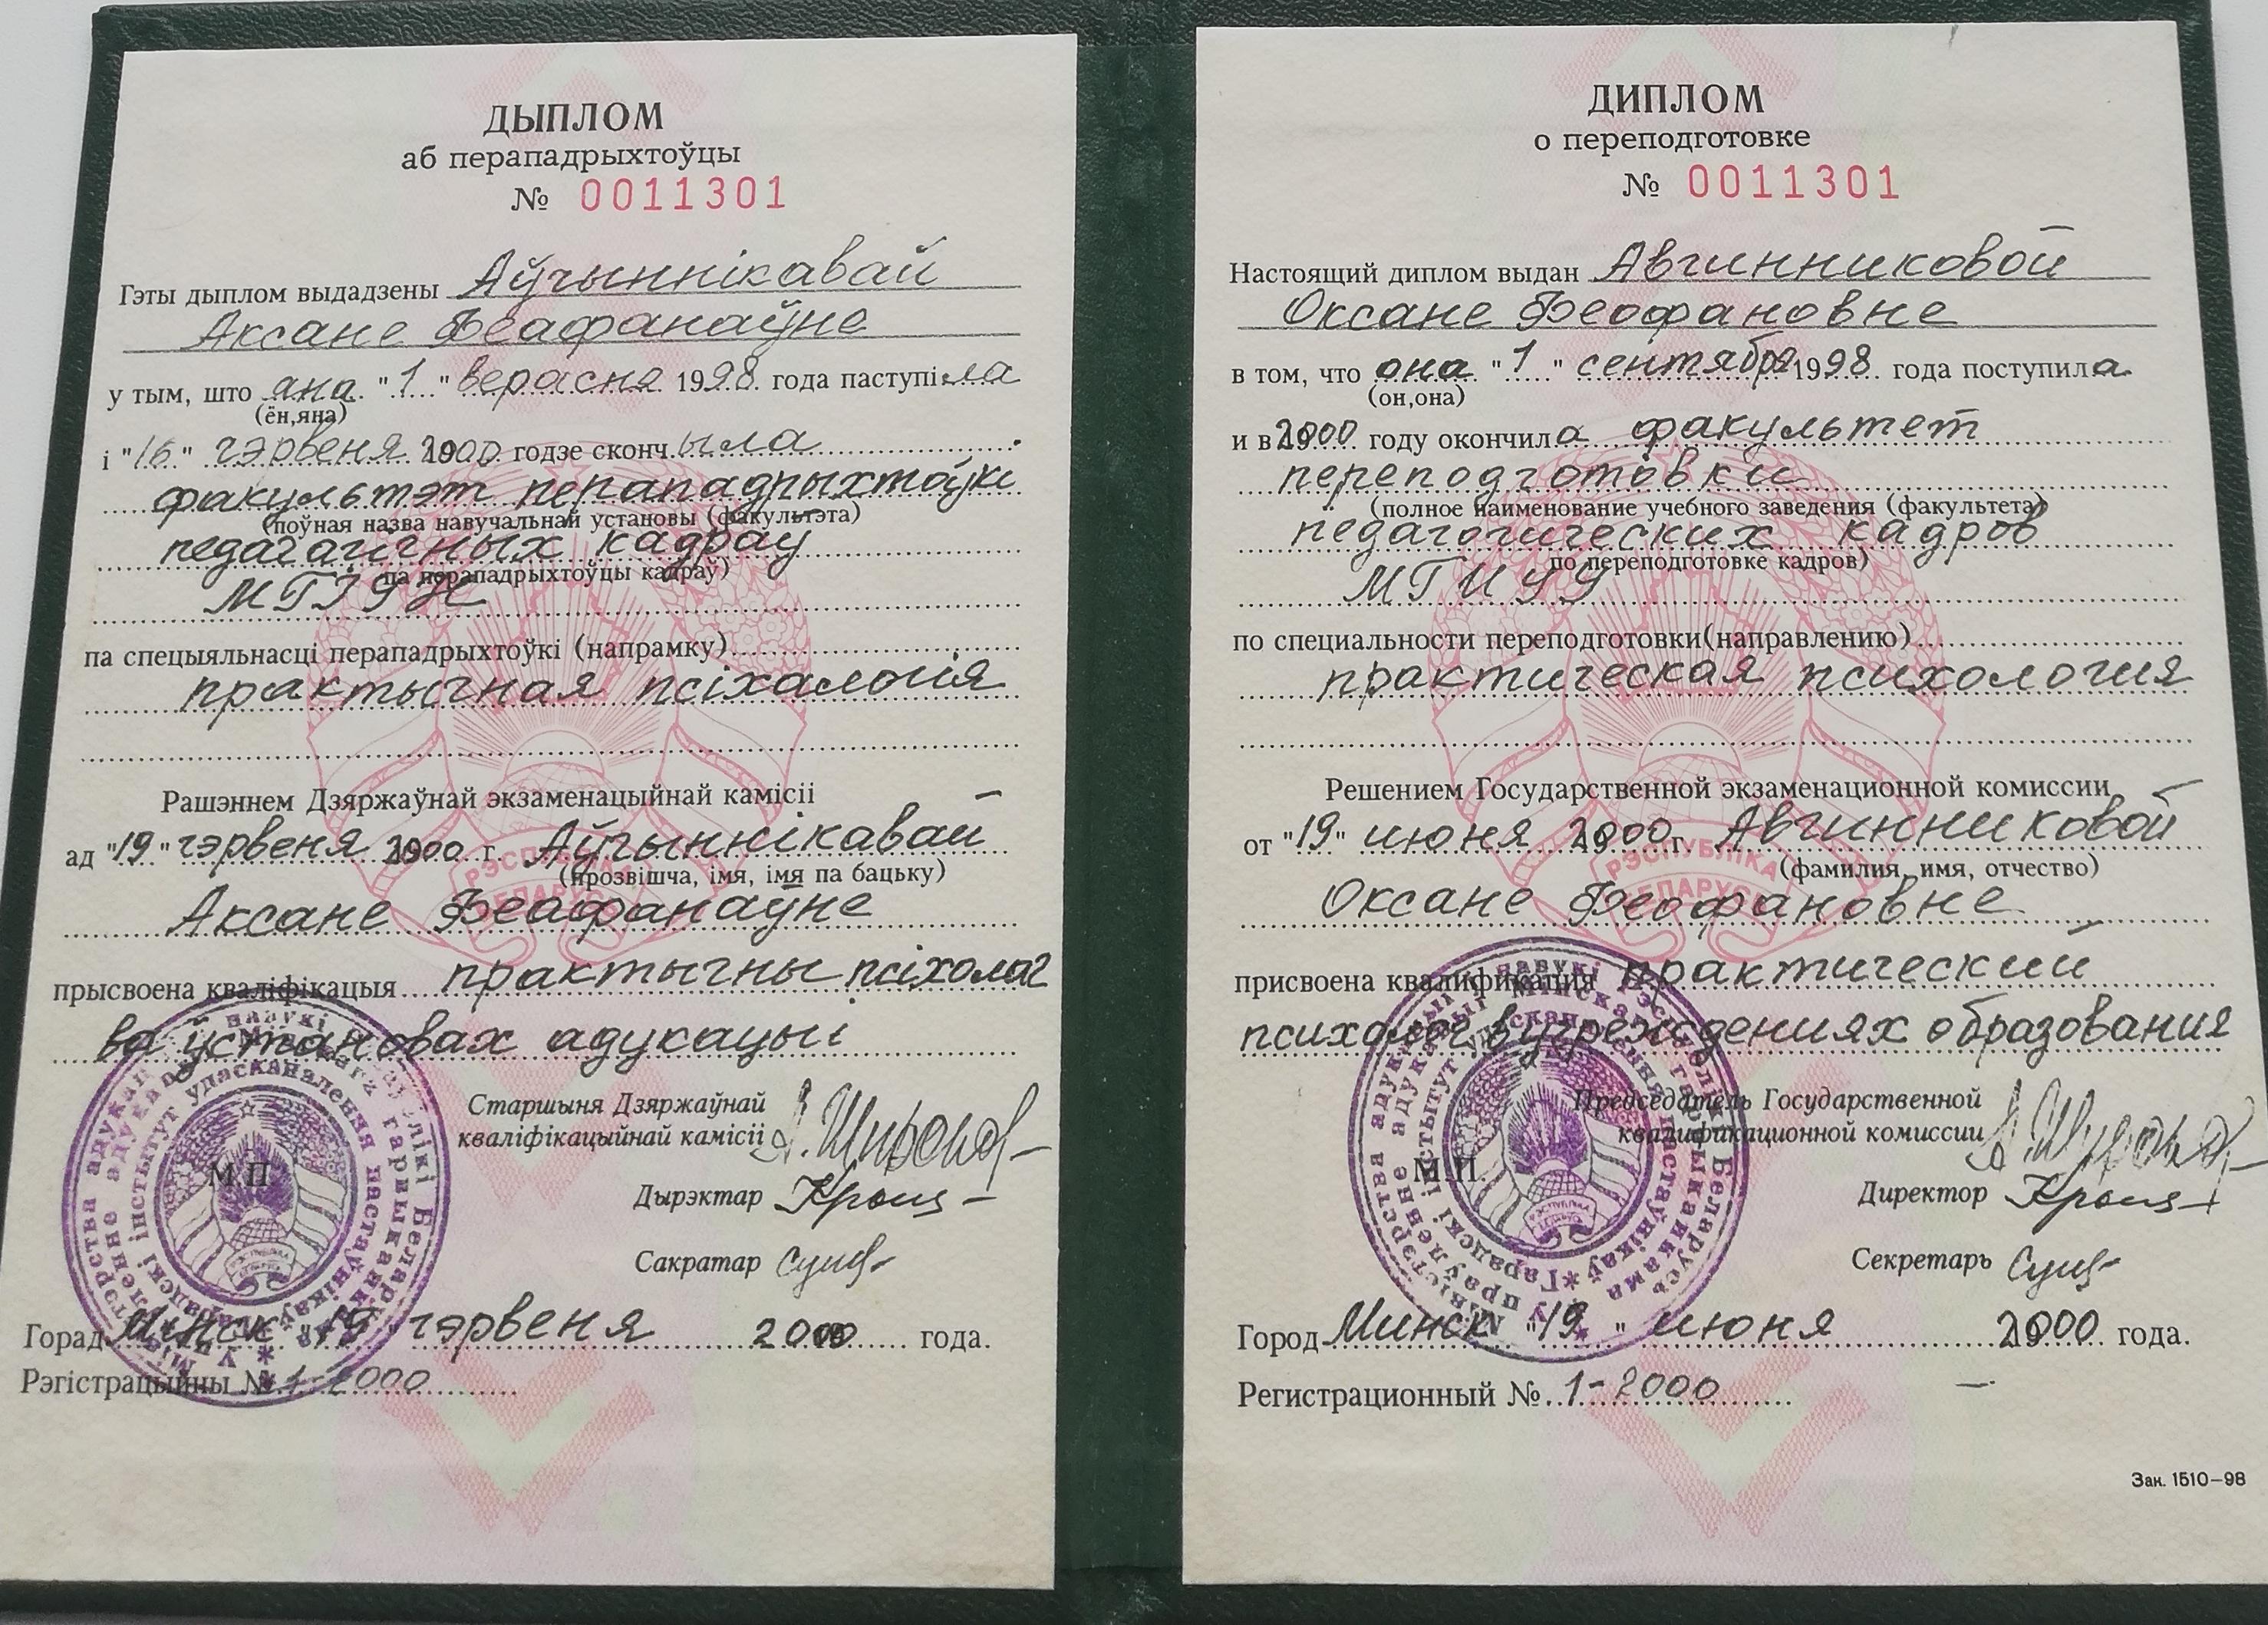 ДЫПЛОМ
аб перападрыхтоўцы
№ 0011301
Гэты дыплом выдадзены Аўчыннікавай
Аксане Феафанаўне
у тым, што яна "1" верасня 1998 года паступіла
(ён,яна)
і "16" чэрвеня 2000 годзе скончыла
факультэт перападрыхтоўкі
(поўная назва навучальнай установы (факультэта)
педагагічных кадраў
па перападрыхтоўцы кадраў)
МГІУН
па спецыяльнасці перападрыхтоўкі (напрамку)
практычная псіхалогія
Рашэннем Дзяржаўнай экзаменацыйнай камісіі
ад "19" чэрвеня 2000 г. Аўчыннікавай
(прозвішча, імя, імя па бацьку)
Аксане Феафанаўне
прысвоена кваліфікацыя практычны псіхолаг
ва ўстановах адукацыі
Старшыня Дзяржаўнай
кваліфікацыйнай камісіі
М.П.
Дырэктар
Сакратар
Горад Мінск "19" чэрвеня 2000 года.
Рэгістрацыйны № 1-2000
ДИПЛОМ
о переподготовке
№ 0011301
Настоящий диплом выдан Авчинниковой
Оксане Феофановне
в том, что она "1" сентября 1998 года поступила
(он,она)
и в 2000 году окончила факультет
переподготовки
(полное наименование учебного заведения (факультета)
педагогических кадров
по переподготовке кадров)
МГИУУ
по специальности переподготовки(направлению)
практическая психология
Решением Государственной экзаменационной комиссии
от "19" июня 2000 г. Авчинниковой
(фамилия, имя, отчество)
Оксане Феофановне
присвоена квалификация практический
психолог в учреждениях образования
Председатель Государственной
квалификационной комиссии
М.П.
Директор
Секретарь
Город Минск "19" июня 2000 года.
Регистрационный № 1-2000
Зак. 1510-98